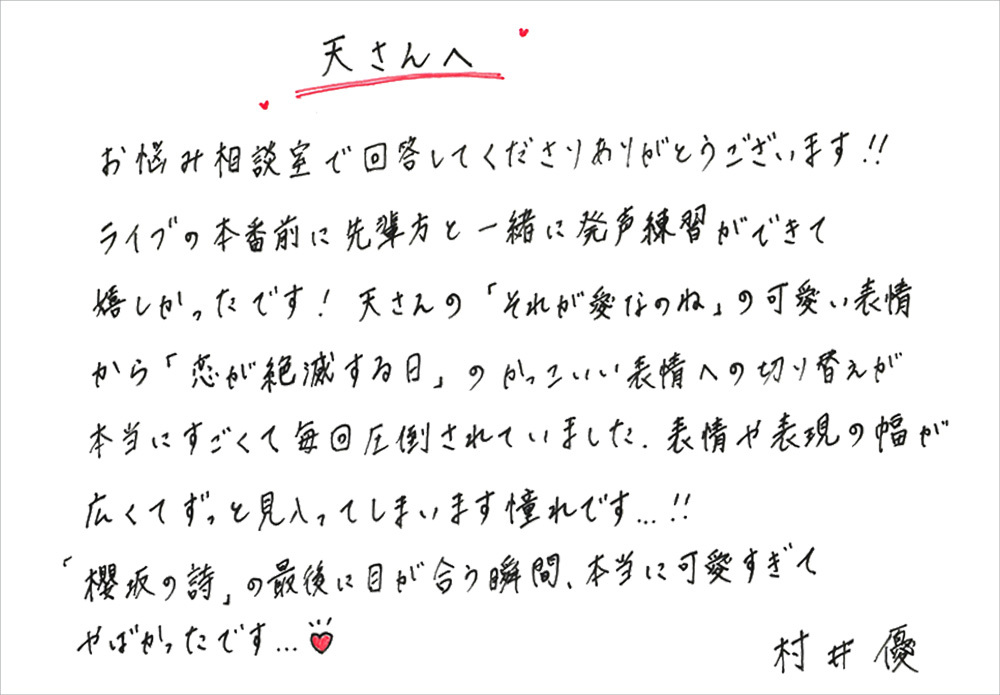 天さんへ
お悩み相談室で回答してくださりありがとうございます!!
ライブの本番前に先輩方と一緒に発声練習ができて
嬉しかったです! 天さんの「それが愛なのね」の可愛い表情
から「恋が絶滅する日」のかっこいい表情への切り替えが
本当にすごくて毎回圧倒されていました。表情や表現の幅が
広くてずっと見入ってしまいます憧れです...!!
「櫻坂の詩」の最後に目が合う瞬間、本当に可愛すぎて
やばかったです...
村井 優